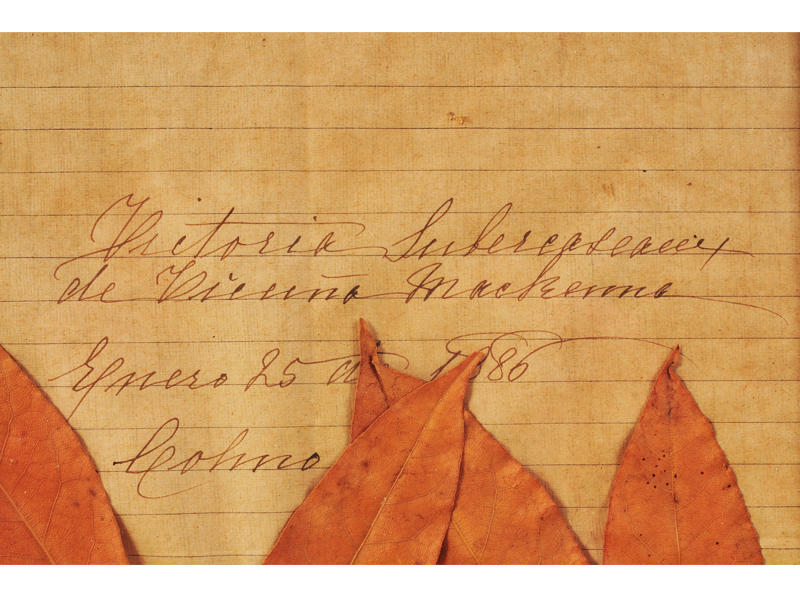 Victoria Subercaseaux
de Vicuña Mackenna
Enero 25 de 1886
Colmo